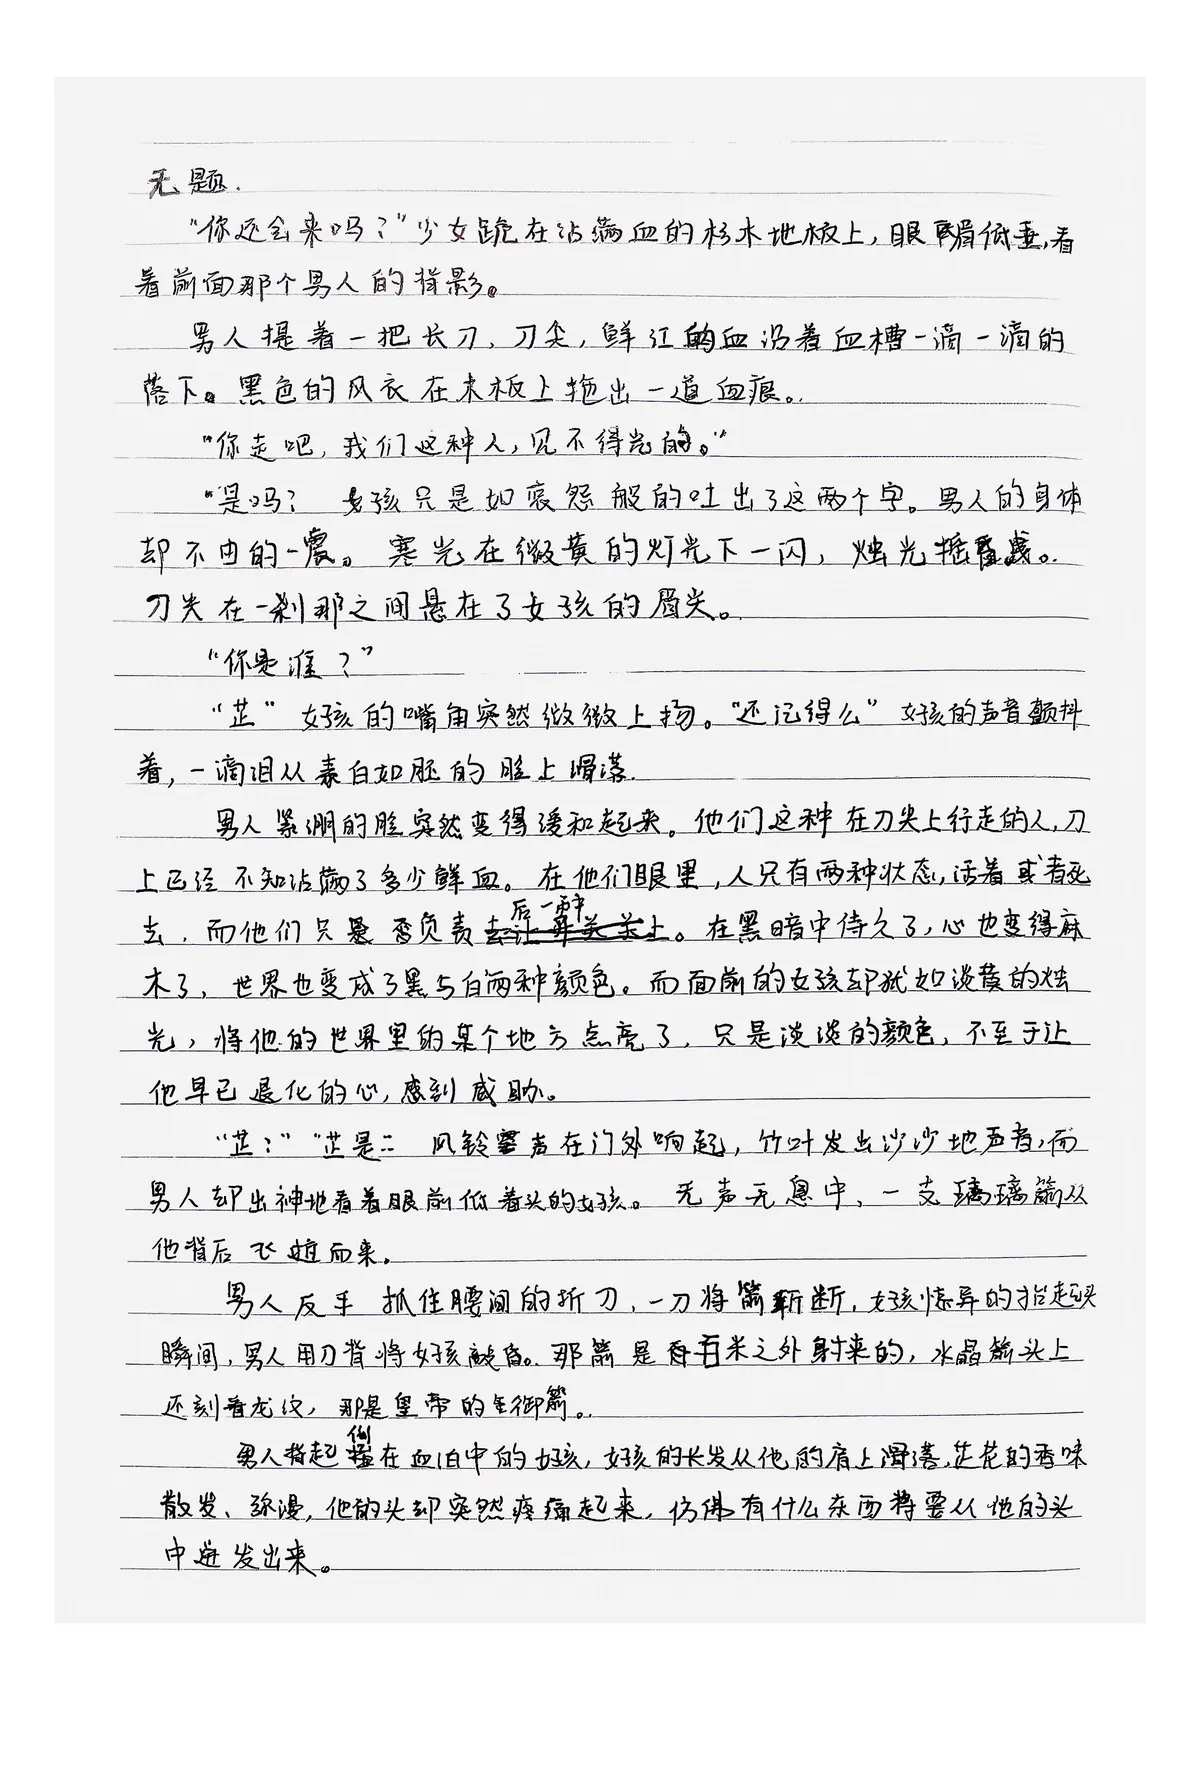 无题.
“你还会来吗？”少女跪在沾满血的杉木地板上，眼眉低垂，看
着前面那个男人的背影。
男人提着一把长刀，刀尖，鲜红的血沿着血槽一滴一滴的
落下。黑色的风衣在木板上拖出一道血痕。
“你走吧，我们这种人，见不得光的。”
“是吗？ 女孩只是如哀怨般的吐出了这两个字。男人的身体
却不由的一震。寒光在微黄的灯光下一闪，烛光摇
刀尖在一刹那之间悬在了女孩的眉尖。
“你是谁？”
“芷”女孩的嘴角突然微微上扬。“还记得么”女孩的声音颤抖
着，一滴泪从素白如胚的脸上滑落.
男人紧绷的脸突然变得缓和起来。他们这种在刀尖上行走的人，刀
上已经不知沾满了多少鲜血。在他们眼里，人只有两种状态，活着或者死
去，而他们只是 负责后一种。在黑暗中待久了，心也变得麻
木了，世界也变成了黑与白两种颜色。而面前的女孩却犹如淡黄的烛
光，将他的世界里的某个地方点亮了，只是淡淡的颜色，不至于让
他早已退化的心，感到威胁。
“芷？”“芷是:: 风铃声在门外响起，竹叶发出沙沙地声音，而
男人却出神地看着眼前低着头的女孩。无声无息中，一支璃璃箭从
他背后飞 而来.
男人反手抓住腰间的折刀，一刀将箭斩断，女孩惊异的抬起头
瞬间，男人用刀背将女孩敲昏。那箭是百米之外射来的，水晶箭头上
还刻着龙纹，那是皇帝的御箭。
男人背起倒在血泊中的女孩，女孩的长发从他的肩上滑落，芷花的香味
散发、弥漫，他的头却突然疼痛起来，仿佛有什么东西将要从他的头
中迸发出来。